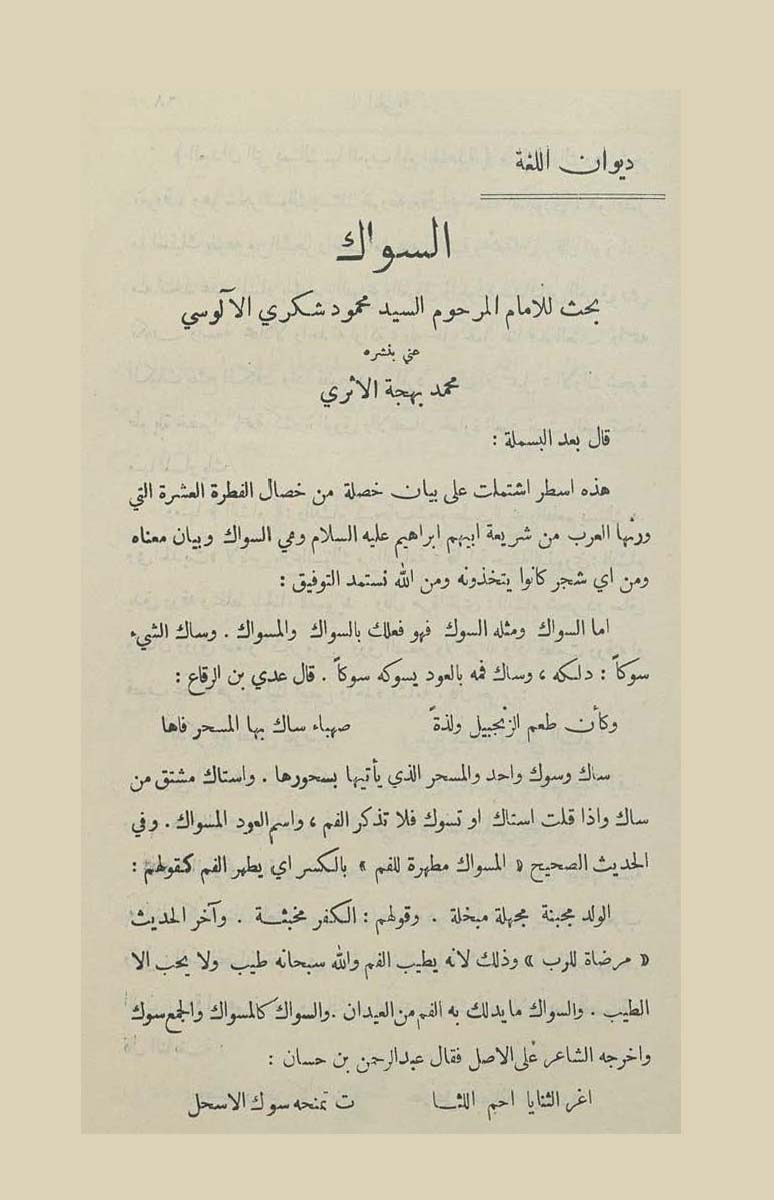 ديوان اللغة
السواك
بحث للامام المرحوم السيد محمود شكري الآلوسي
عني بنشره
محمد بهجة الاثري
قال بعد البسملة :
هذه اسطر اشتملت على بيان خصلة من خصال الفطرة العشرة التي
ورثها العرب من شريعة ابيهم ابراهيم عليه السلام وهي السواك وبيان معناه
ومن اي شجر كانوا يتخذونه ومن الله نستمد التوفيق :
اما السواك ومثله السوك فهو فعلك بالسواك والمسواك . وساك الشيء
سوكاً : دلكه ، وساك فمه بالعود يسوكه سوكاً . قال عدي بن الرقاع :
وكأن طعم الزنجبيل ولذةً صهباء ساك بها المسحر فاها
ساك وسوك واحد والمسحر الذي يأتيها بسحورها . واستاك مشتق من
ساك واذا قلت استاك او تسوك فلا تذكر الفم ، واسم العود المسواك . وفي
الحديث الصحيح « المسواك مطهرة للفم » بالكسر اي يطهر الفم كقولهم :
الولد مجبنة مجهلة مبخلة . وقولهم : الكفر مخبثة . وآخر الحديث
« مرضاة للرب » وذلك لانه يطيب الفم والله سبحانه طيب ولا يحب الا
الطيب . والسواك ما يدلك به الفم من العيدان . والسواك كالمسواك والجمع سوك
واخرجه الشاعر على الاصل فقال عبدالرحمن بن حسان :
اغر الثنايا احم اللثا ت تمنحه سوك الاسحل